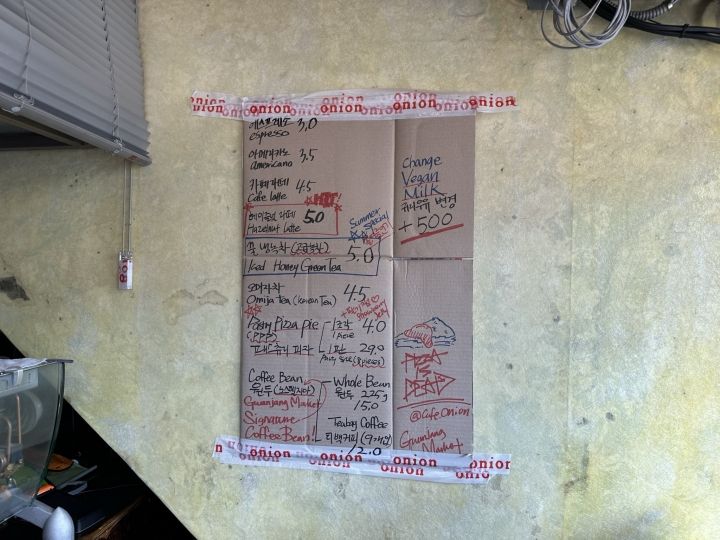 onion onion onion onion onion
에스프레소 3,0
espresso
아메리카노 3.5
americano
카페라떼 4.5
Cafe latte
HOT!
헤이즐넛 라떼 5.0
Hazelnut latte
Summer
Special
꿀 냉녹차 5.0
Iced Honey Green Tea
오미자차 4.5
Omija Tea (Korean Tea)
Pastry Pizza pie 1조각 4.0
(PPP) 1 Piece
페스츄리 피자 1판 29.0
Coffee Bean Whole Bean
원두 원두 225g
Gwanjang Market 15.0
Signature Teabag Coffee
Coffee Bean 티백커피
12.0
Change
Vegan
Milk
변경
+500
PIZZA
IS
DEAD
@Cafe Onion
Gwanjang
Market
onion onion onion onion onion